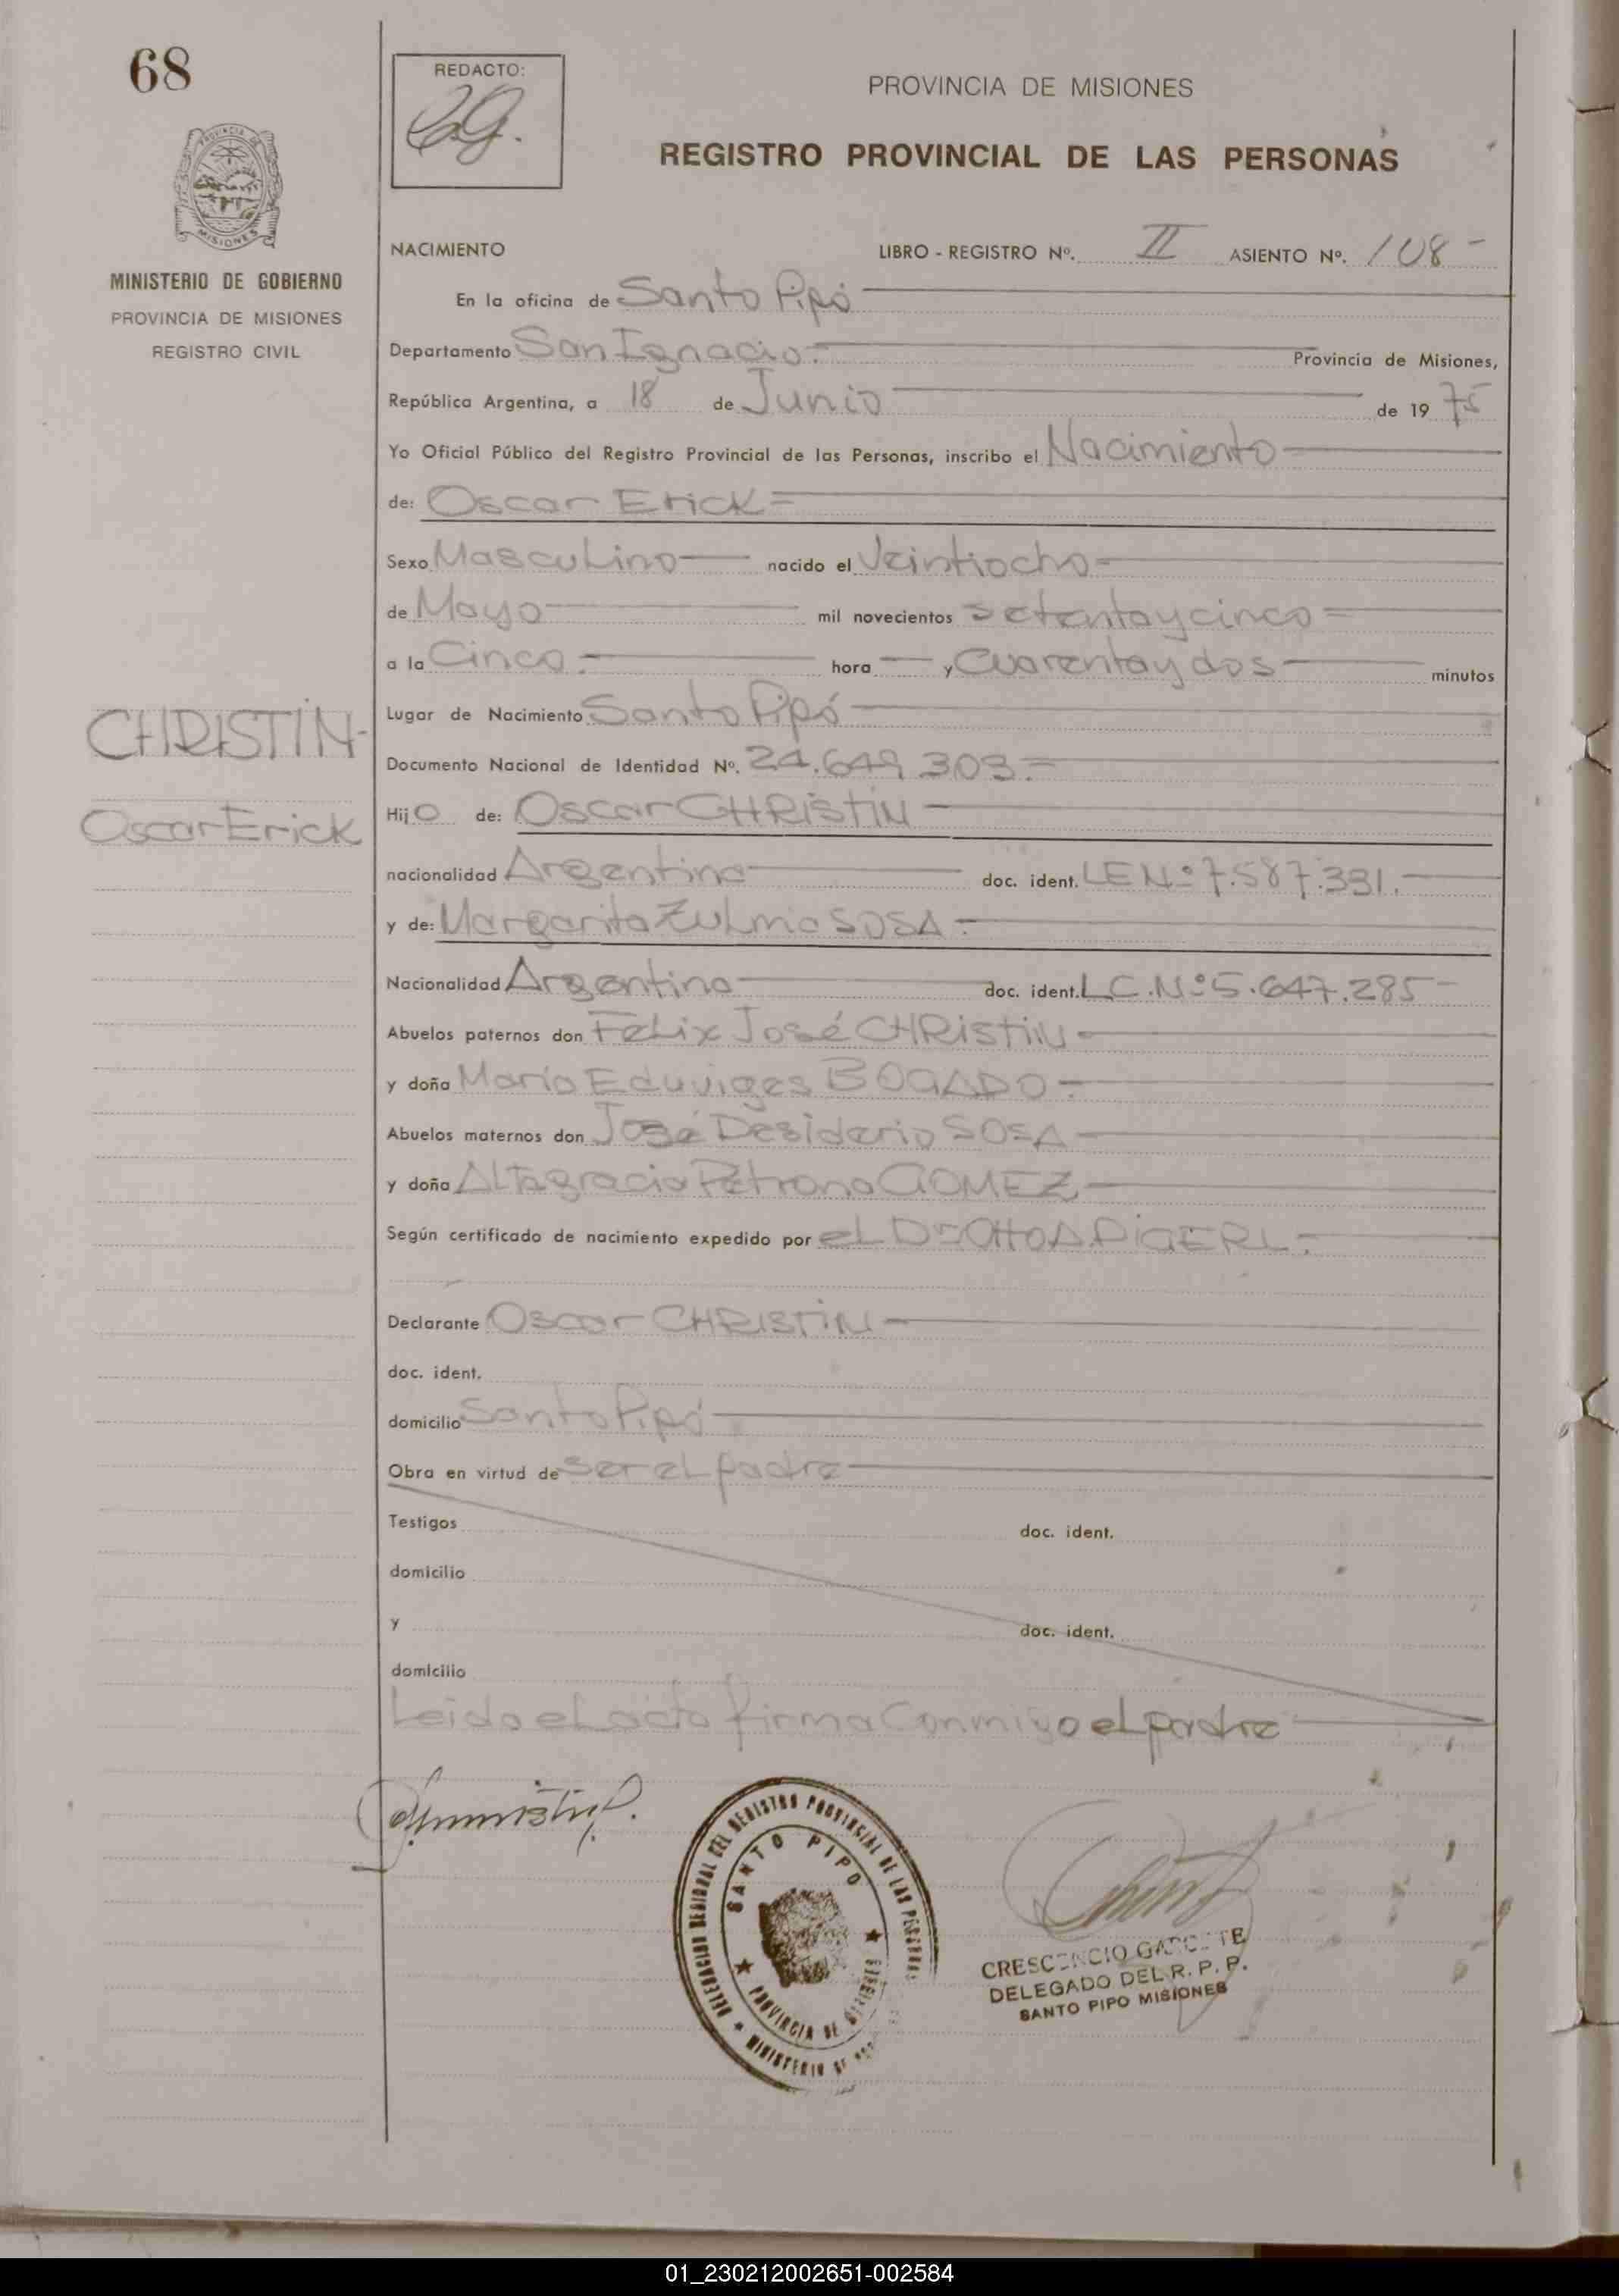 68
REDACTO:
PROVINCIA DE MISIONES
REGISTRO PROVINCIAL DE LAS PERSONAS
PROVINCIA DE
MISIONES
MINISTERIO DE GOBIERNO
PROVINCIA DE MISIONES
REGISTRO CIVIL
NACIMIENTO LIBRO - REGISTRO Nº. II ASIENTO Nº. 108-
En la oficina de Santo Pipó
Departamento San Ignacio.- Provincia de Misiones,
República Argentina, a 18 de Junio de 1975
Yo Oficial Público del Registro Provincial de las Personas, inscribo el Nacimiento
de: Oscar Erick=
Sexo Masculino nacido el Veintiocho
de Mayo mil novecientos setentaycinco=
a la Cinco.- hora — y Cuarentaydos minutos
Lugar de Nacimiento Santo Pipó
CHRISTIN-
Documento Nacional de Identidad Nº. 24.649.303.=
Oscar Erick
Hijo de: Oscar CHRISTIN
nacionalidad Argentina doc. ident. LE Nº 7.587.331.
y de: Margarita Zulma SOSA.=
Nacionalidad Argentina doc. ident. L.C.Nº 5.647.285-
Abuelos paternos don Felix José CHRISTIN-
y doña María Eduviges BOGADO.-
Abuelos maternos don José Desiderio SOSA-
y doña Altagracia Petrona GOMEZ-
Según certificado de nacimiento expedido por el Dr OTTO A. PIGERL.-
Declarante Oscar CHRISTIN-
doc. ident.
domicilio Santo Pipó
Obra en virtud de ser el padre
Testigos doc. ident.
domicilio
y doc. ident.
domicilio
Leido el acto firma Conmigo el padre
DELEGACION REGIONAL DEL REGISTRO PROVINCIAL DE LAS PERSONAS
SANTO PIPO
PROVINCIA DE MISIONES
MINISTERIO DE
CRESCENCIO
DELEGADO DEL R. P. P.
SANTO PIPO MISIONES
01_230212002651-002584